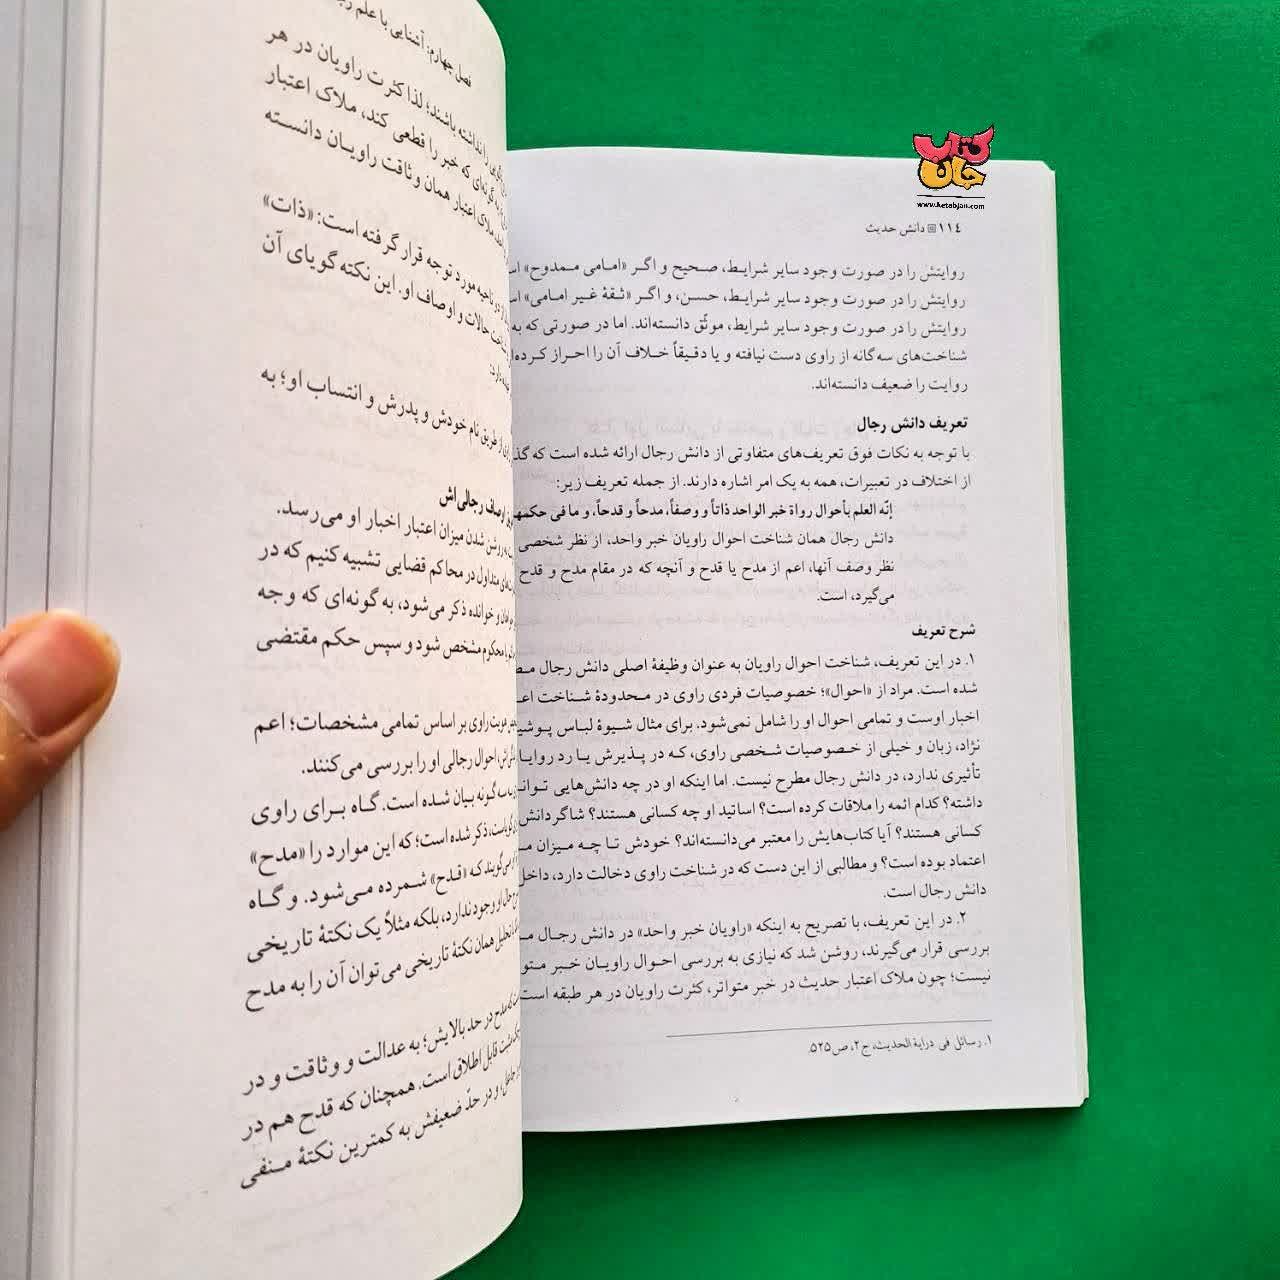 کتاب جان
www.ketabjan.com
۱۱۴ دانش حدیث
روایتش را در صورت وجود سایر شرایط، صحیح و اگر «امامی ممدوح»
روایتش را در صورت وجود سایر شرایط، حسن، و اگر «ثقهٔ غیر امامی»
روایتش را در صورت وجود سایر شرایط، موثّق دانسته‌اند. اما در صورتی که به
شناخت‌های سه‌گانه از راوی دست نیافته و یا دقیقاً خلاف آن را احراز
روایت را ضعیف دانسته‌اند.
تعریف دانش رجال
با توجه به نکات فوق تعریف‌های متفاوتی از دانش رجال ارائه شده است که
از اختلاف در تعبیرات، همه به یک امر اشاره دارند. از جمله تعریف زیر:
إنّه العلم بأحوال رواة خبر الواحد ذاتاً و وصفاً، مدحاً و قدحاً، و ما فی حکمها
دانش رجال همان شناخت احوال راویان خبر واحد، از نظر شخصی
نظر وصف آنها، اعم از مدح یا قدح و آنچه که در مقام مدح و قدح
می‌گیرد، است.
شرح تعریف
۱. در این تعریف، شناخت احوال راویان به عنوان وظیفهٔ اصلی دانش رجال
شده است. مراد از «احوال»؛ خصوصیات فردی راوی در محدودهٔ شناخت
اخبار اوست و تمامی احوال او را شامل نمی‌شود. برای مثال شیوهٔ لباس
نژاد، زبان و خیلی از خصوصیات شخصی راوی، که در پذیرش یا رد
تأثیری ندارد، در دانش رجال مطرح نیست. اما اینکه او در چه دانش‌هایی
داشته؟ کدام ائمه را ملاقات کرده است؟ اساتید او چه کسانی هستند؟ شاگردانش
کسانی هستند؟ آیا کتاب‌هایش را معتبر می‌دانسته‌اند؟ خودش تا چه میزان
اعتماد بوده است؟ و مطالبی از این دست که در شناخت راوی دخالت دارد، داخل
دانش رجال است.
۲. در این تعریف، با تصریح به اینکه «راویان خبر واحد» در دانش رجال
بررسی قرار می‌گیرند، روشن شد که نیازی به بررسی احوال راویان خبر
نیست؛ چون ملاک اعتبار حدیث در خبر متواتر، کثرت راویان در هر طبقه است
۱. رسائل فی درایة الحدیث، ج۲، ص۵۲۵.
فصل چهارم: آشنایی با علم
را نداشته باشند؛ لذا کثرت راویان در هر
به گونه‌ای که خبر را قطعی کند، ملاک اعتبار
ملاک اعتبار همان وثاقت راویان دانسته
مورد توجه قرار گرفته است: «ذات»
حالات و اوصاف او. این نکته گویای آن
از طریق نام خودش و پدرش و انتساب او؛ به
اوصاف رجالی‌اش
روشن شدن میزان اعتبار اخبار او می‌رسد.
متداول در محاکم قضایی تشبیه کنیم که در
و خوانده ذکر می‌شود، به گونه‌ای که وجه
محکوم مشخص شود و سپس حکم مقتضی
هویت راوی بر اساس تمامی مشخصات؛ اعم
احوال رجالی او را بررسی می‌کنند.
سه گونه بیان شده است. گاه برای راوی
ذکر شده است؛ که این موارد را «مدح»
می‌گویند که «قدح» شمرده می‌شود. و گاه
حال او وجود ندارد، بلکه مثلاً یک نکتهٔ تاریخی
تحلیل همان نکتهٔ تاریخی می‌توان آن را به مدح
که مدح در حد بالایش؛ به عدالت و وثاقت و در
مثبت قابل اطلاق است. همچنان که قدح هم در
و در حدّ ضعیفش به کمترین نکتهٔ منفی